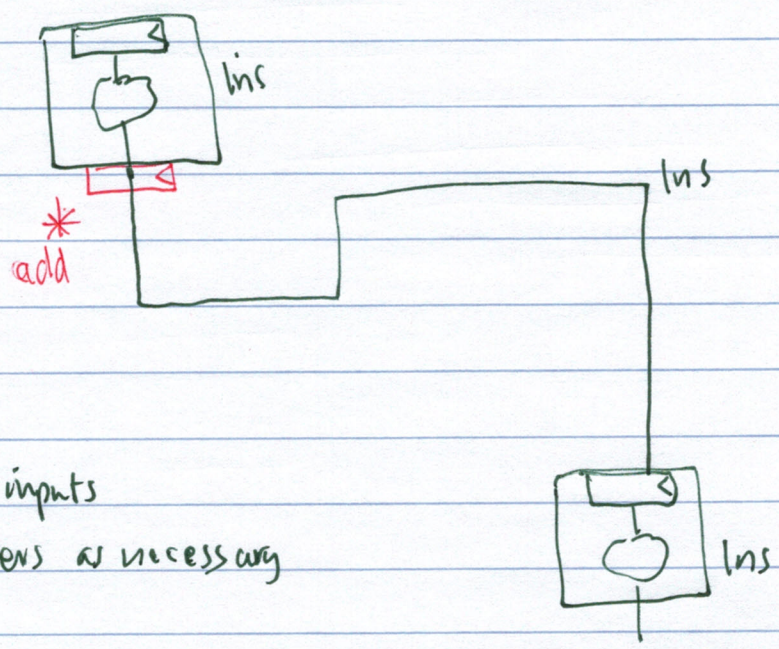 1ns
1ns
* add
inputs
ers as necessary
1ns